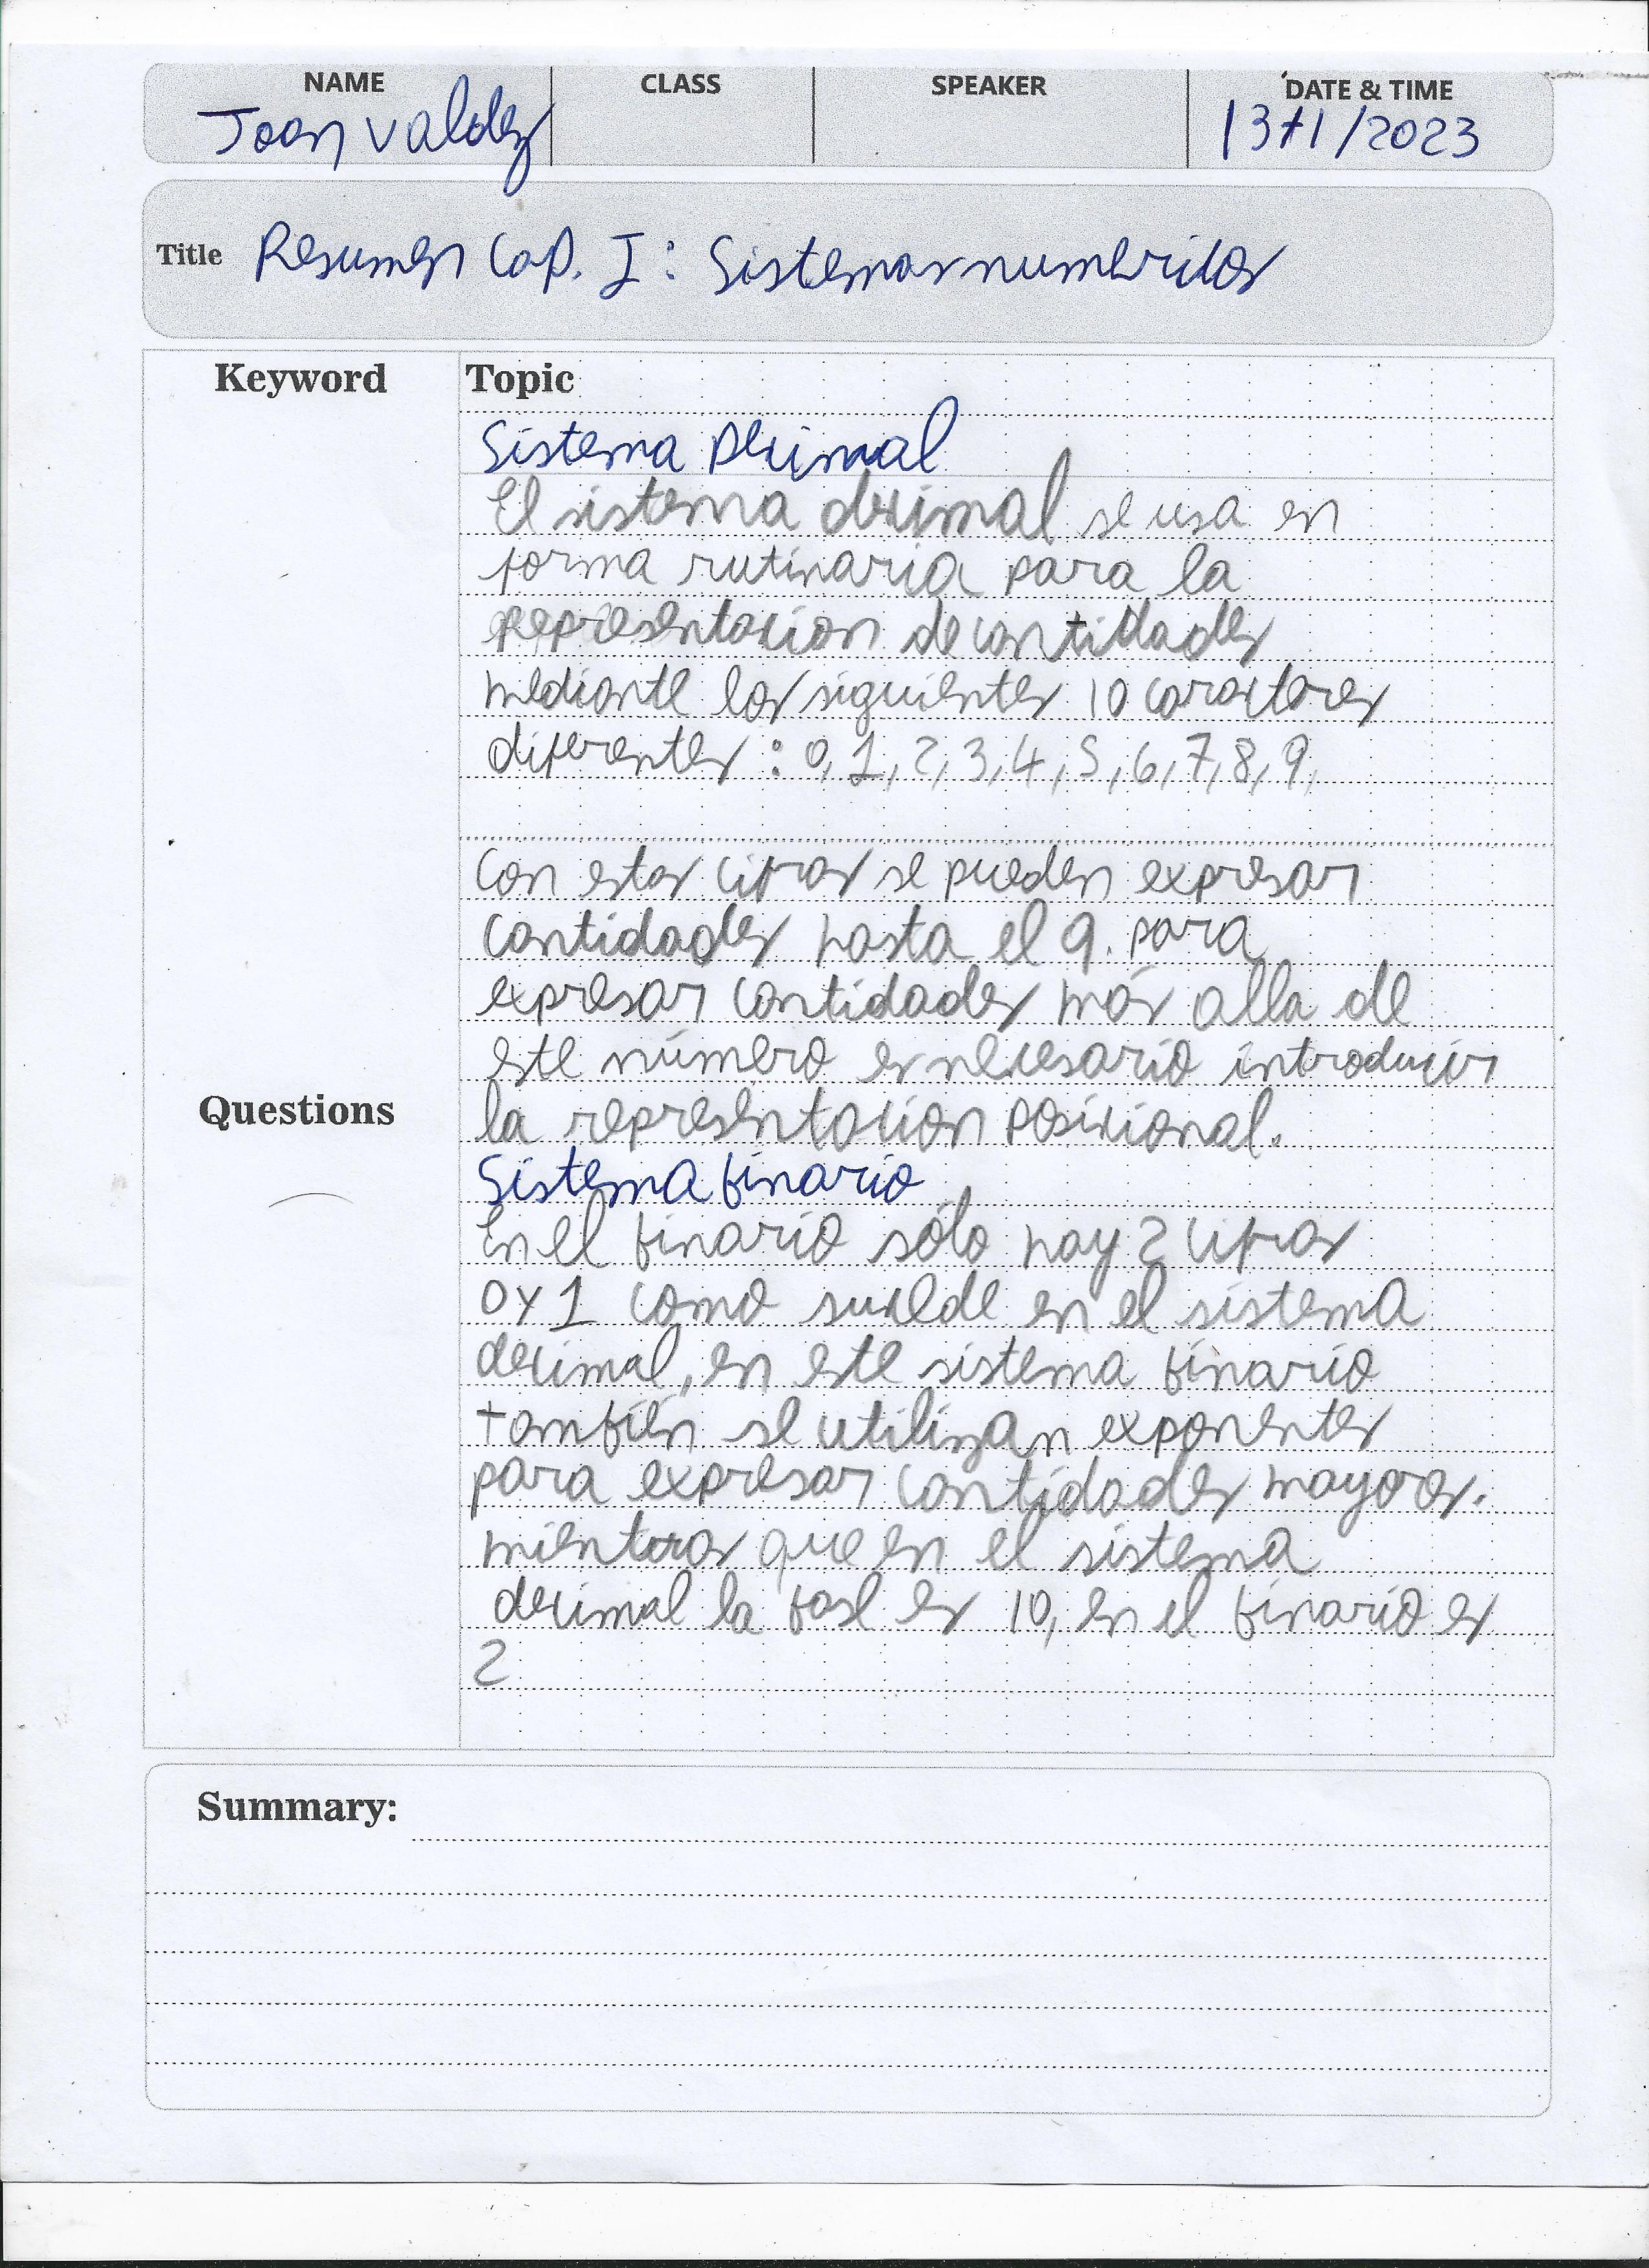 NAME CLASS SPEAKER DATE & TIME
Joan Valdez 13/1/2023
Title Resumen Cap. I: Sistemas numericos
Keyword Topic
Sistema Decimal
El sistema decimal se usa en
forma rutinaria para la
representacion de cantidades
mediante los siguientes 10 caracteres
diferentes: 0, 1, 2, 3, 4, 5, 6, 7, 8, 9,
Con estas cifras se pueden expresar
cantidades hasta el 9. para
expresar cantidades más alla de
este número es necesario introducir
Questions la representacion posicional.
Sistema binario
En el binario sólo hay 2 cifras
0 y 1 como sucede en el sistema
decimal, en este sistema binario
también se utilizan exponentes
para expresar cantidades mayores.
mientras que en el sistema
decimal la base es 10, en el binario es
2
Summary: